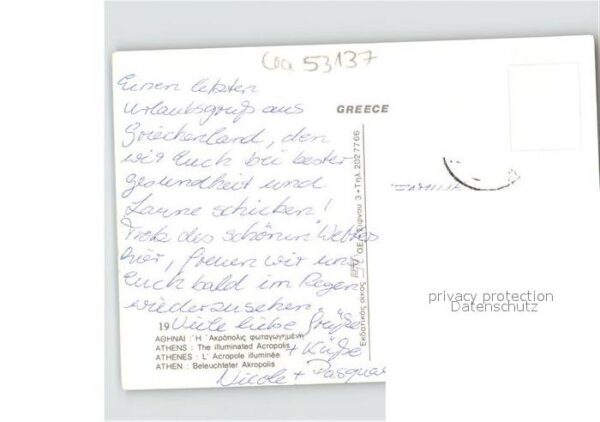 Wa 53137
Einen letzten
Urlaubsgruß aus
Griechenland, den
wir Euch bei bester
Gesundheit und
Laune schicken!
Trotz des schönen Wetters
hier, freuen wir uns
Euch bald im Regen
wiederzusehen.
Viele liebe Grüße
+ Küße
Nicole + Pasqual
GREECE
3 • Τηλ. 2027766
Εκδοτικός οίκος
19
ΑΘΗΝΑΙ : Ἡ Ἀκρόπολις φωταγωγημένη
ATHENS : The illuminated Acropolis
ATHENES : L' Acropole illuminée
ATHEN : Beleuchteter Akropolis
privacy protection
Datenschutz